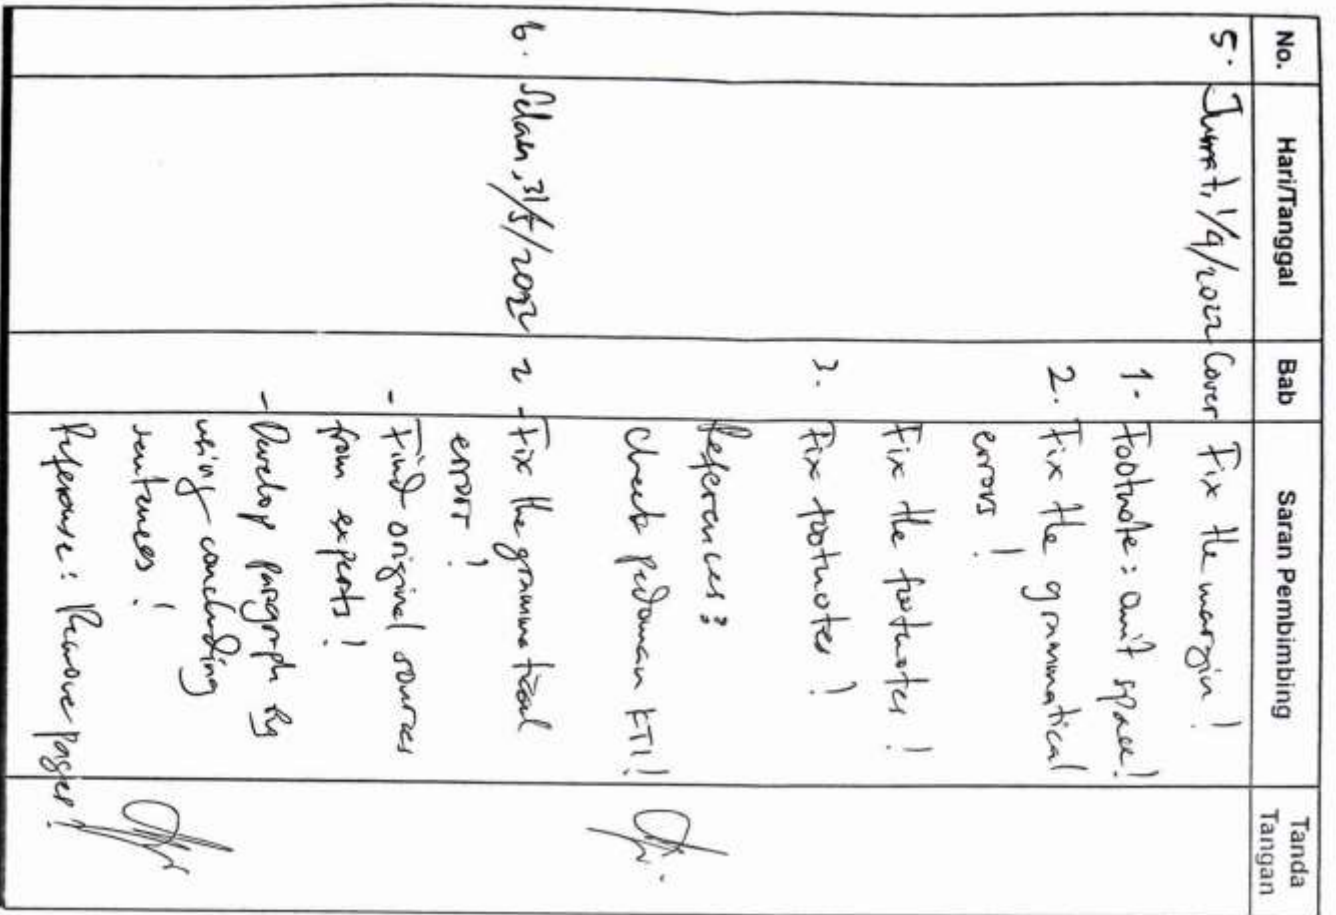 No. Hari/Tanggal Bab Saran Pembimbing Tanda Tangan
5. Jumat, 1/4/2022 Cover Fix the margin!
1. Footnote: omit space!
2. Fix the grammatical
errors!
Fix the footnotes!
3. Fix footnotes!
References:
Check pedoman KTI!
6. Selasa, 31/5/2022 2 - Fix the grammatical
error!
- Find original sources
from experts!
- Develop paragraph by
using concluding
sentences!
Reference: Remove pages!